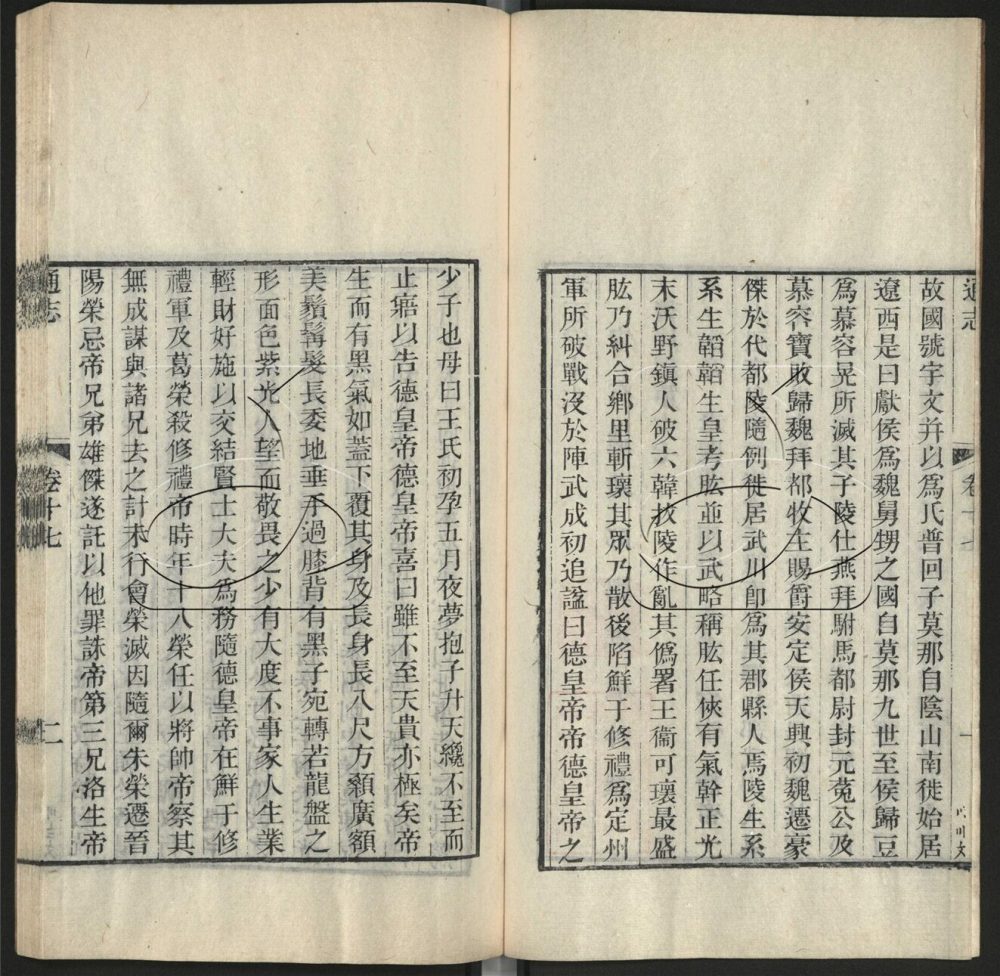 通志
卷十七
一
故國號宇文并以爲氏普回子莫那自陰山南徙始居
遼西是曰獻侯爲魏舅甥之國自莫那九世至侯歸豆
爲慕容晃所滅其子陵仕燕拜駙馬都尉封元菟公及
慕容寶敗歸魏拜都牧主賜爵安定侯天興初魏遷豪
傑於代都陵隨例徙居武川卽爲其郡縣人焉陵生系
系生韜韜生皇考肱並以武略稱肱任俠有氣幹正光
末沃野鎮人破六韓拔陵作亂其僞署王衞可瓌最盛
肱乃糾合鄉里斬瓌其眾乃散後陷鮮于修禮爲定州
軍所破戰沒於陣武成初追諡曰德皇帝帝德皇帝之
少子也母曰王氏初孕五月夜夢抱子升天纔不至而
止寤以告德皇帝德皇帝喜曰雖不至天貴亦極矣帝
生而有黑氣如蓋下覆其身及長身長八尺方顙廣額
美鬚髯髮長委地垂手過膝背有黑子宛轉若龍盤之
形面色紫光人望而敬畏之少有大度不事家人生業
輕財好施以交結賢士大夫爲務隨德皇帝在鮮于修
禮軍及葛榮殺修禮帝時年十八榮任以將帥帝察其
無成謀與諸兄去之計未行會榮滅因隨爾朱榮遷晉
陽榮忌帝兄弟雄傑遂託以他罪誅帝第三兄洛生帝
通志
卷十七
二